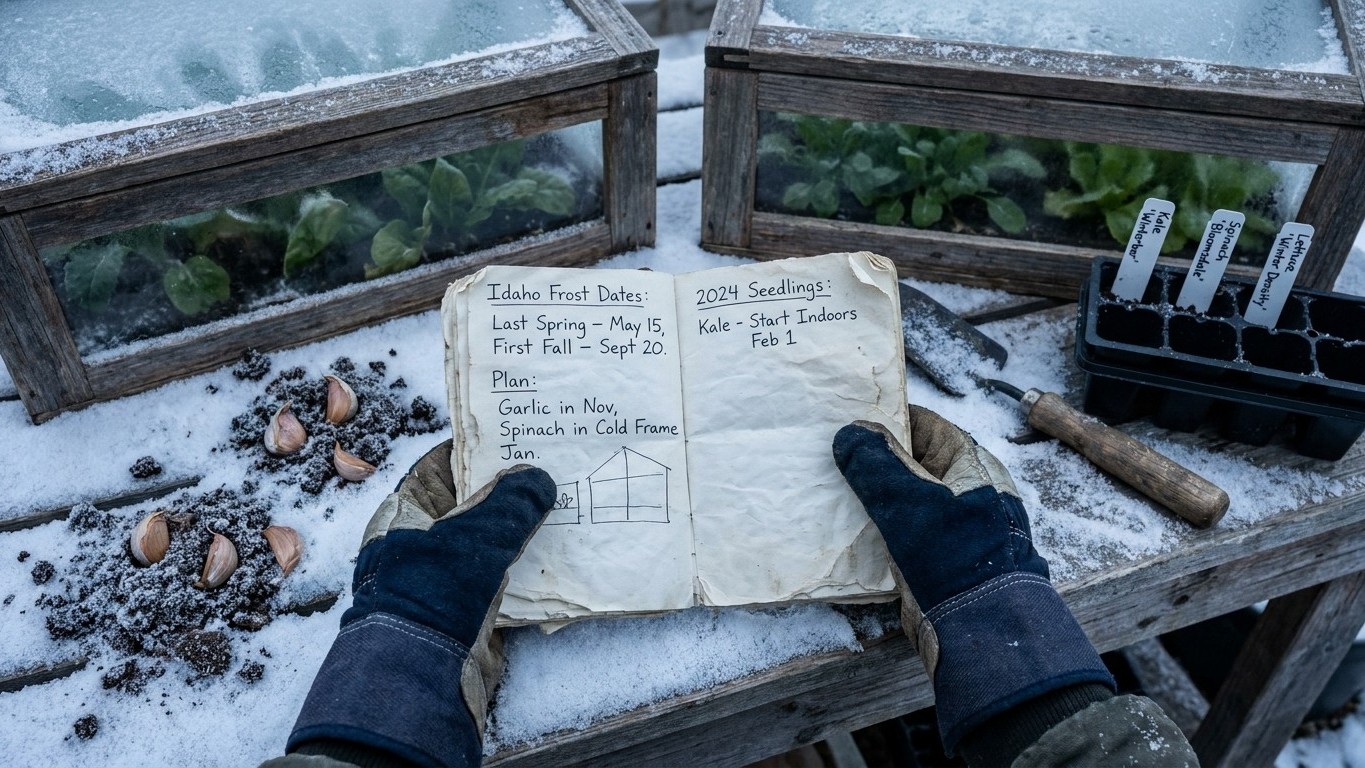 Idaho Frost Dates:
Last Spring – May 15,
First Fall – Sept 20.
Plan:
Garlic in Nov,
Spinach in Cold Frame
Jan.
2024 Seedlings:
Kale - Start Indoors
Feb 1
Kale
'Winterbor'
Spinach
'Bloomsdale'
Lettuce
'Winter Density'